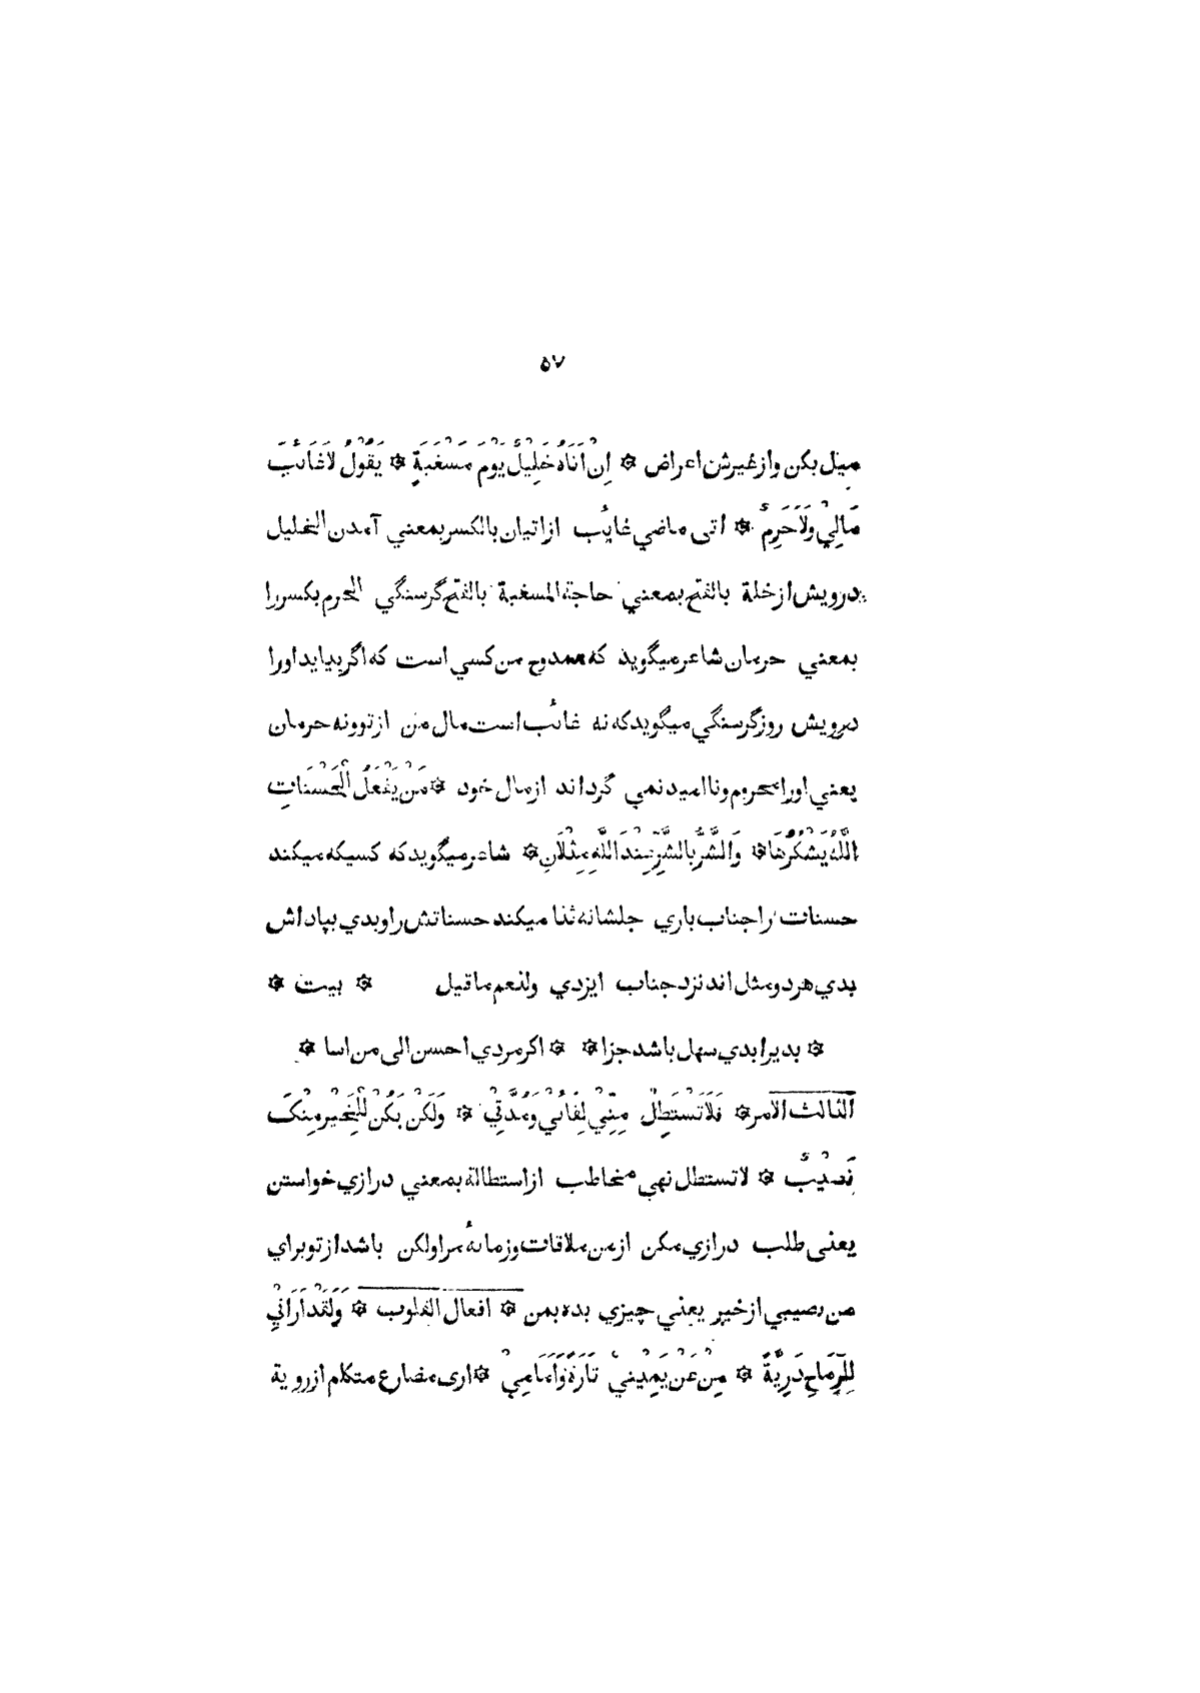 ٥٧
ميل بكن وازغيرش اعراض ۞ اِنْ اَتَاهُ خَلِيْلٌ يَوْمَ مَسْغَبَةٍ ۞ يَقُوْلُ لَاغَائبٌ
مَالِيْ وَلَاحَرِمُ ۞ اتى ماضي غائب ازاتيان بالكسر بمعني آمدن الخليل
درويش ازخلة بالفتح بمعني حاجة المسغبة بالفتح گرسنگي الحرم بكسررا
بمعني حرمان شاعر ميگويد كه ممدوح من كسي است كه اگر بيايد اورا
درويش روزگرسنگي ميگويد كه نه غائب است مال من ازتوونه حرمان
يعني اورا محروم ونااميد نمي گرداند ازمال خود ۞ مَنْ يَفْعَلُ الْحَسَنَاتِ
اللّٰهُ يَشْكُرُهَا ۞ وَالشَّرُّ بِالشَّرِّ عِنْدَ اللّٰهِ مِثْلَانِ ۞ شاعر ميگويد كه كسيكه ميكند
حسنات را جناب باري جلشانه ثنا ميكند حسناتش را وبدي بپاداش
بدي هر دو مثل اند نزد جناب ايزدي ولنعم ماقيل ۞ بيت ۞
۞ بديرا بدي سهل باشد جزا ۞ ۞ اكر مردي احسن الى من اسا ۞
الثالث الامر ۞ فَلَاتَسْتَطِلْ مِنِّيْ لِقَائِيْ وَمُدَّتِيْ ۞ وَلٰكِنْ يَكُنْ لِلْخَيْرِ مِنْكَ
نَصِيْبٌ ۞ لاتستطل نهي مخاطب ازاستطالة بمعني درازي خواستن
يعني طلب درازي مكن ازمن ملاقات وزمانهٔ مرا ولكن باشد ازتوبراي
من نصيبي ازخير يعني چيزي بده بمن ۞ افعال القلوب ۞ وَلَقَدْ اَرَانِيْ
لِلرِّمَاحِ دَرِيَّةً ۞ مِنْ عَنْ يَمِيْنِيْ تَارَةً وَاَمَامِيْ ۞ ارى مضارع متكلم ازروية